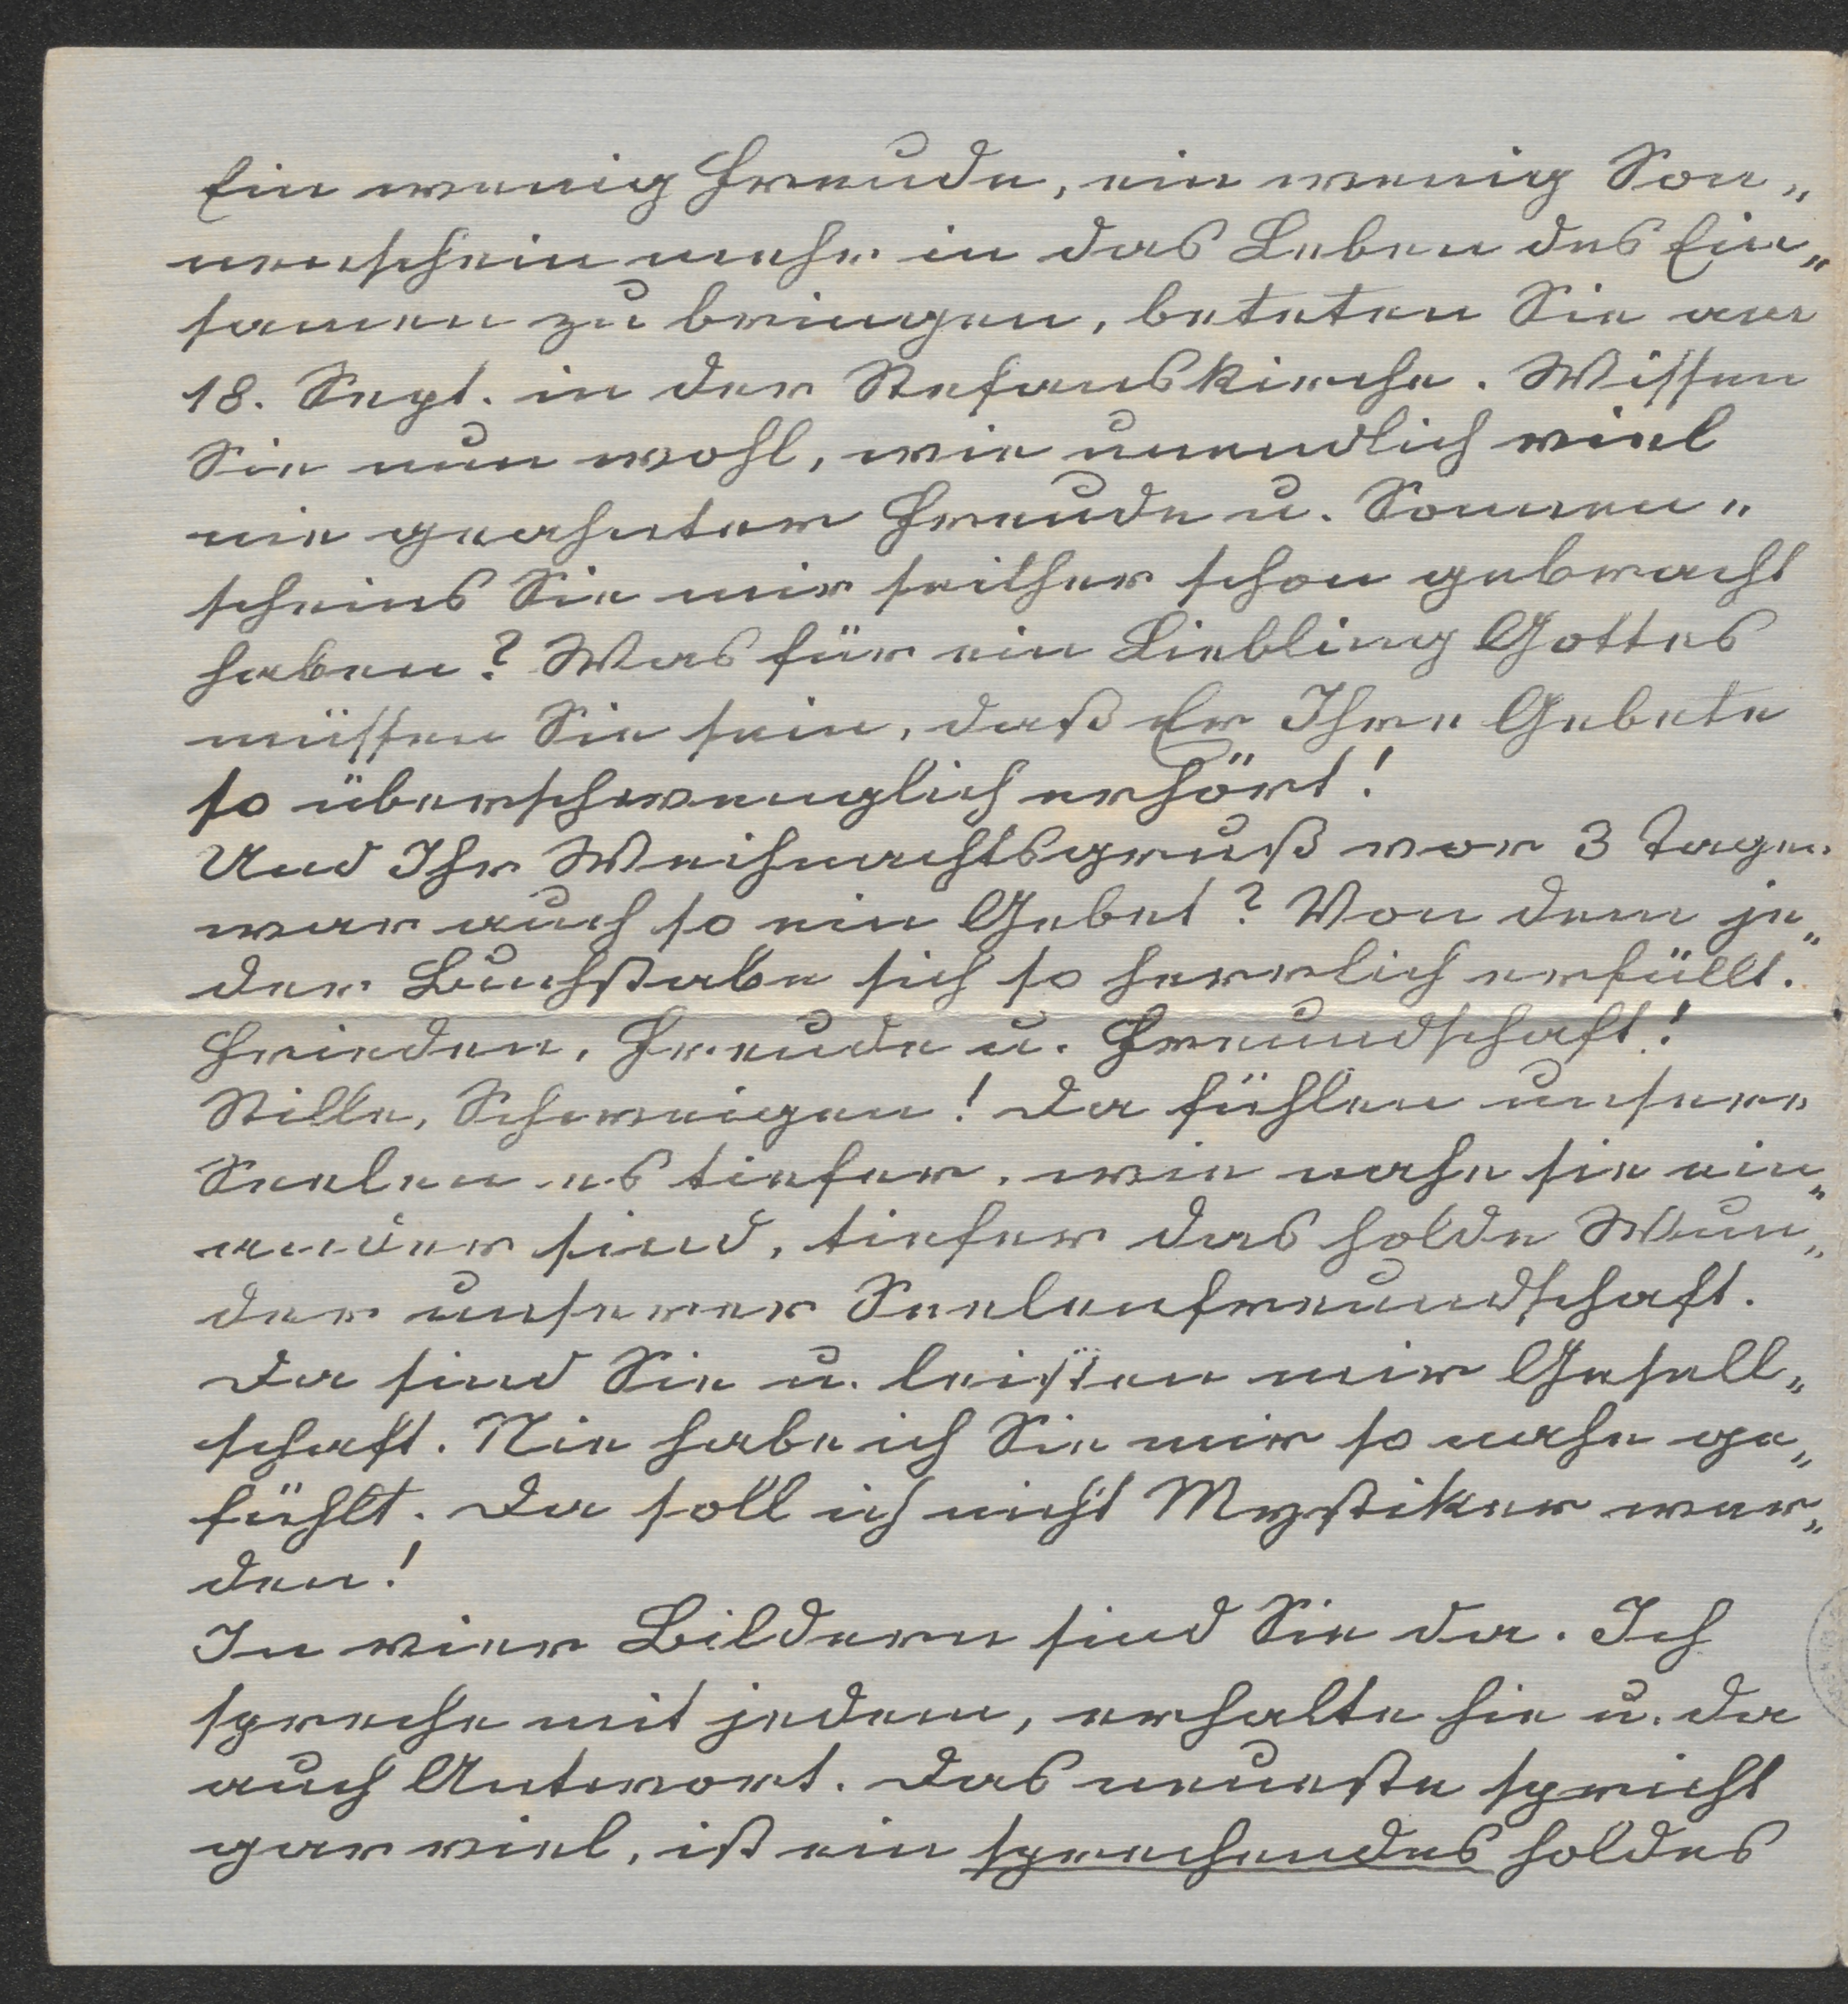 Ein wenig Freude, ein wenig Son„
nenschein mehr in das Leben des Ein„
samen zu bringen, beteten Sie am
18. Sept. in der Stefanskirche. Wissen
Sie nun wohl, wie unendlich viel
nie geahnter Freude u. Sonnen„
scheins Sie mir seither schon gebracht
haben? Was für ein Liebling Gottes
müssen Sie sein, daß Er Ihre Gebete
so überschwenglich erhört!
Und Ihr Weihnachtsgruß vor 3 Tagen
war auch so ein Gebet? Von dem je„
der Buchstabe sich so herrlich erfüllt.
Frieden, Freude u. Freundschaft!
Stille, Schweigen! Da fühlen unsere
Seelen es tiefer, wie nahe sie ein„
ander sind, tiefer das holde Wun„
der unserer Seelenfreundschaft.
Da sind Sie u. leisten mir Gesell„
schaft. Nie habe ich Sie mir so nahe ge„
fühlt. Da soll ich nicht Mystiker wer„
den!
In vier Bildern sind Sie da. Ich
spreche mit jedem, erhalte hie u. da
auch Antwort. Das neueste spricht
gar viel, ist ein sprechendes holdes